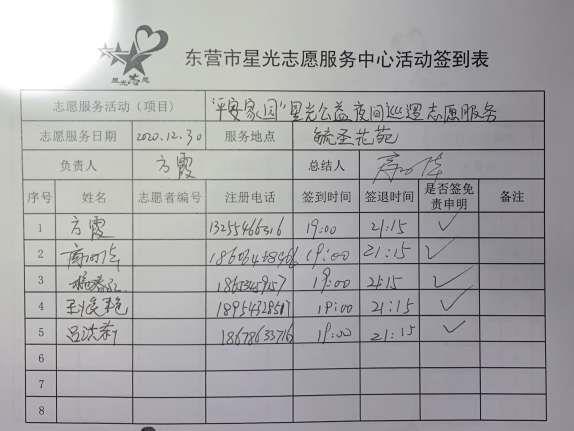 星光志愿
东营市星光志愿服务中心活动签到表
志愿服务活动（项目） "平安家园"星光公益夜间巡逻志愿服务
志愿服务日期 2020.12.30 服务地点 毓圣花苑
负责人 方霞 总结人
序号 姓名 志愿者编号 注册电话 签到时间 签退时间 是否签免责申明 备注
1 方霞 13255466316 19:00 21:15 ✓
2 19:00 21:15 ✓
3 19:00 21:15 ✓
4 19:00 21:15 ✓
5 18678633716 19:00 21:15 ✓
6
7
8